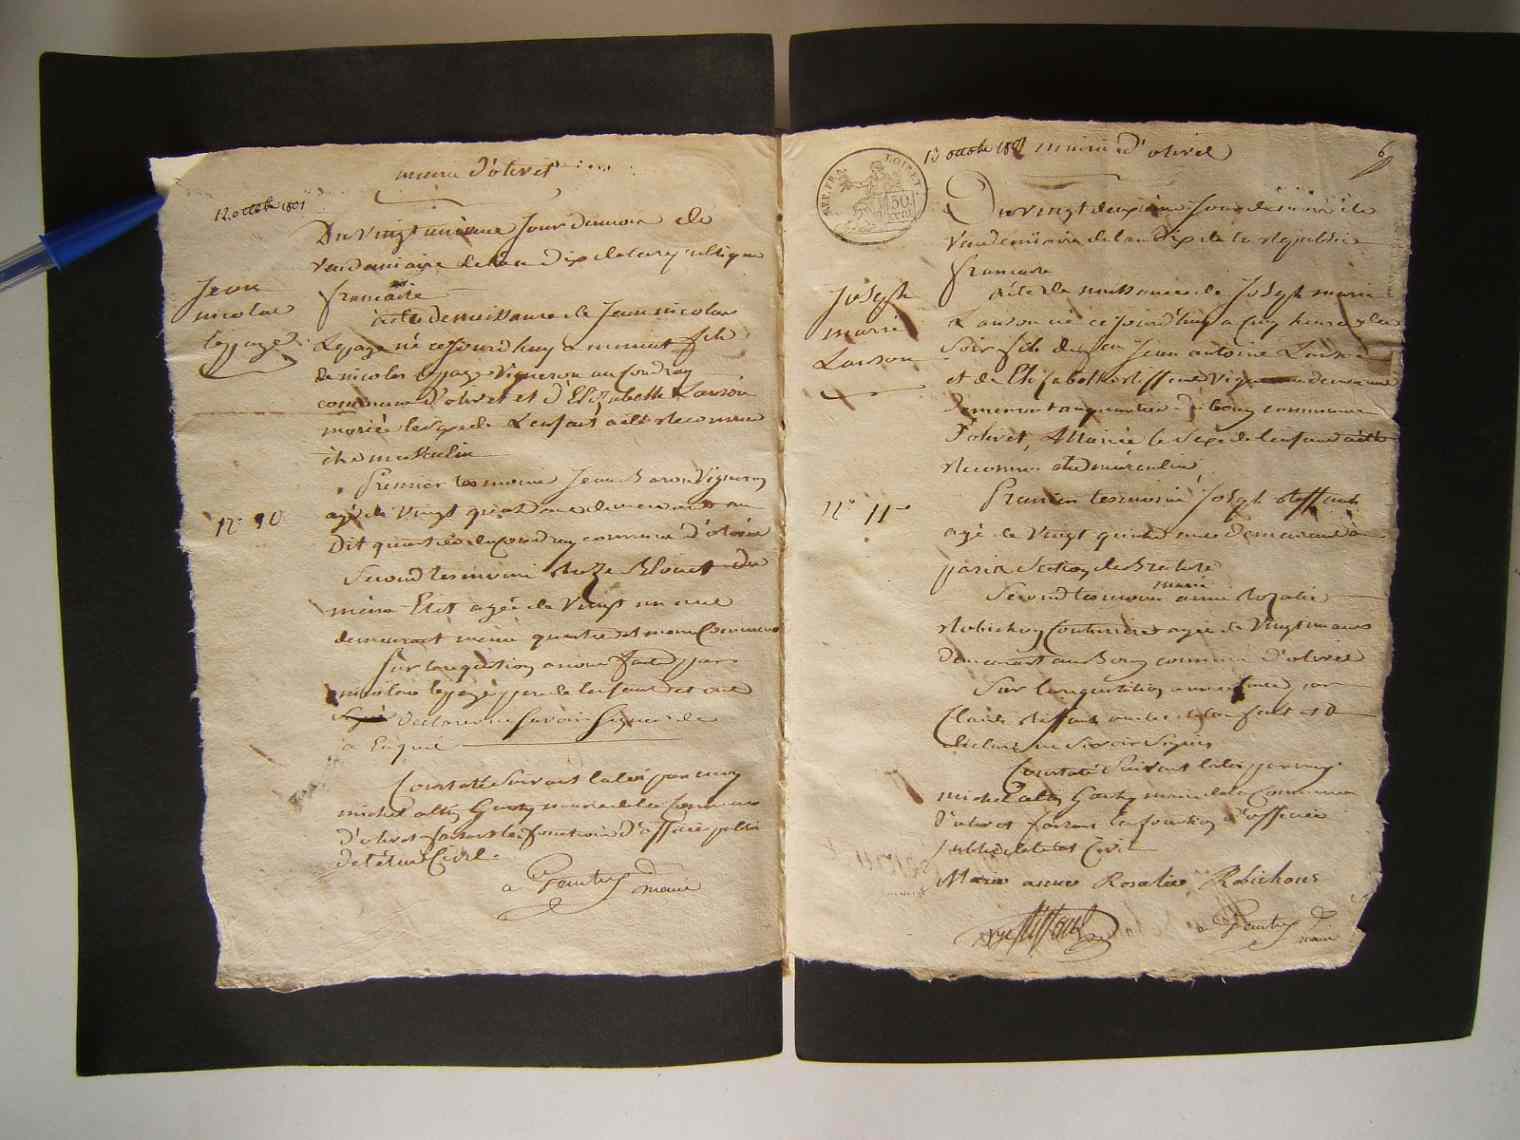 mairie d'olivet
12 octobre 1801
Du vingt unieme jour du mois de
Vendemiaire de l'an dix de la republique
française
Jean
nicolas
lepage
acte de naissance de Jean nicolas
Lepage né ce jourd'huy a minuit fils
de nicolas lepage Vigneron au
commune d'olivet et d'Elizabeth Lanson
mariés le sexe de L'enfant a été reconnu
être masculin
premier temoin Jean Baron Vigneron
agé de Vingt quatre ans demeurant au
N° 10
dit quartier du commune d'olivet
Second temoin Blouet du
même Etat agée de Vingt un ans
demeurant même quartier et même Commune
sur la requisition a nous faite par
nicolas lepage pere de l'enfant et ont
declaré ne savoir signer de
ce Enquis
Constaté suivant la loi par moy
michel maire de la Commune
d'olivet faisant les fonctions d'officier public
de l'état Civil.
maire
REP. FRA.
LOIRET
50
13 octobre 1801 mairie d'olivet
6
Du vingt deuxieme jour du mois de
Vendemiaire de l'an Dix de la republique
française
Joseph
marie
Lanson
acte de naissance de Joseph marie
Lanson né ce jourd'huy a cinq heures du
soir fils de feu Jean antoine Lanson
et de Elisabeth
demeurant au quartier du bourg commune
d'olivet, Mariée le sexe de l'enfant a été
reconnu etre masculin
N° 11
Premier temoin Joseph
agé de Vingt quatre ans demeurant à
paris section de
Second temoin marie anne Rozalie
Robichon Couturiere agée de Vingt un ans
demeurant au Bourg commune d'olivet
Sur la requisition a nous faite par
de l'enfant et a
declaré ne savoir signer
Constaté suivant la loi par moy
michel maire de la Commune
d'olivet faisant les fonctions d'officier
public de l'état Civil
Marie anne Rosalie Robichons
maire